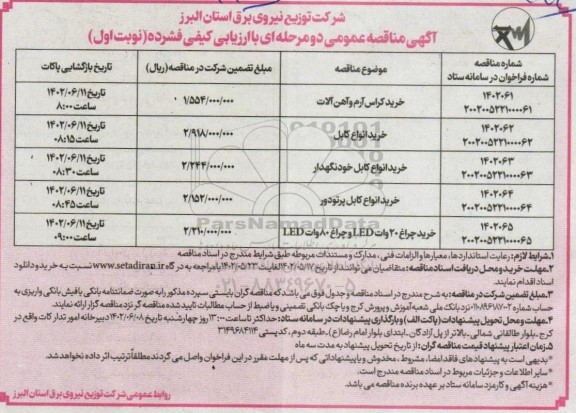 شرکت توزیع نیروی برق استان البرز
آگهی مناقصه عمومی دو مرحله ای با ارزیابی کیفی فشرده (نوبت اول)
شماره مناقصه
شماره فراخوان در سامانه ستاد
موضوع مناقصه
مبلغ تضمین شرکت در مناقصه (ریال)
تاریخ بازگشایی پاکات
۱۴۰۲۰۶۱
۲۰۰۲۰۰۵۲۲۱۰۰۰۰۶۱
خرید کراس آرم و آهن آلات
۱/۵۵۴/۰۰۰/۰۰۰
تاریخ ۱۴۰۲/۰۶/۱۱
ساعت ۸:۰۰
۱۴۰۲۰۶۲
۲۰۰۲۰۰۵۲۲۱۰۰۰۰۶۲
خرید انواع کابل
۲/۹۱۸/۰۰۰/۰۰۰
تاریخ ۱۴۰۲/۰۶/۱۱
ساعت ۰۸:۱۵
۱۴۰۲۰۶۳
۲۰۰۲۰۰۵۲۲۱۰۰۰۰۶۳
خرید انواع کابل خودنگهدار
۲/۲۴۴/۰۰۰/۰۰۰
تاریخ ۱۴۰۲/۰۶/۱۱
ساعت ۰۸:۳۰
۱۴۰۲۰۶۴
۲۰۰۲۰۰۵۲۲۱۰۰۰۰۶۴
خرید انواع کابل پرتودور
۲/۱۵۲/۰۰۰/۰۰۰
تاریخ ۱۴۰۲/۰۶/۱۱
ساعت ۰۸:۴۵
۱۴۰۲۰۶۵
۲۰۰۲۰۰۵۲۲۱۰۰۰۰۶۵
خرید چراغ ۲۰ وات LED و چراغ ۸۰ وات LED
۲/۲۱۰/۰۰۰/۰۰۰
تاریخ ۱۴۰۲/۰۶/۱۱
ساعت ۰۹:۰۰
ParsNamadData
۰۲۱-۸۸۳۴۹۶۷۰-۵
۱. شرایط لازم: رعایت استانداردها، معیارها و الزامات فنی، مدارک و مستندات مربوطه طبق شرایط مندرج در اسناد مناقصه
۲. مهلت خرید و محل دریافت اسناد مناقصه: متقاضیان می توانند از تاریخ ۱۴۰۲/۰۵/۱۷ لغایت ۱۴۰۲/۰۵/۲۳ با مراجعه به درگاه www.setadiran.ir نسبت به خرید و دانلود
اسناد اقدام نمایند.
۳. مبلغ تضمین شرکت در مناقصه: به شرح مندرج در اسناد مناقصه و جدول فوق می باشد که مناقصه گران بایستی سپرده مذکور را به صورت ضمانتنامه بانکی یا فیش بانکی واریزی به
حساب شماره نزد بانک ملی شعبه آموزش و پرورش کرج و یا چک بانکی تضمینی و یا ضبط از حساب مطالبات تایید شده مناقصه گر نزد مناقصه گزار ارائه نمایند.
۴. مهلت و محل تحویل پیشنهادات (پاکت الف) و بارگذاری پیشنهادات در سامانه ستاد: حداکثر تا ساعت ۱۳:۰۰ روز چهارشنبه تاریخ ۱۴۰۲/۰۶/۰۸ دبیرخانه امور تدارکات واقع در
کرج، بلوار طالقانی شمالی، بالاتر از پل آزادگان، ابتدای بلوار امام رضا (ع)، طبقه دوم، کدپستی ۳۱۴۹۶۸۴۱۱۴
۵. زمان اعتبار پیشنهاد قیمت مناقصه گران: از تاریخ تحویل پیشنهاد به مدت سه ماه
* بدیهی است به پیشنهادهای فاقد امضا، مشروط، مخدوش و یا پیشنهاداتی که پس از مهلت مقرر در این فراخوان واصل می گردند مطلقا ترتیب اثر داده نخواهد شد.
* سایر اطلاعات و جزئیات مربوط در اسناد مناقصه مندرج است.
* هزینه آگهی و کارمزد سامانه ستاد بر عهده برنده مناقصه می باشد.
روابط عمومی شرکت توزیع نیروی برق استان البرز